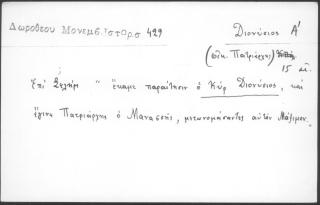 Δωροθεου Μονεμβ. Ιστορ σ 429
Διονύσιος Α'
(οἰκ. Πατριάρχης)
15 αἰ.
Ἐπὶ Σελήμ " ἔκαμε παραίτησιν ὁ Κὺρ Διονύσιος, καὶ
ἔγινε Πατριάρχης ὁ Μανασσῆς, μετωνομάσαντες αὐτὸν Μάξιμον.